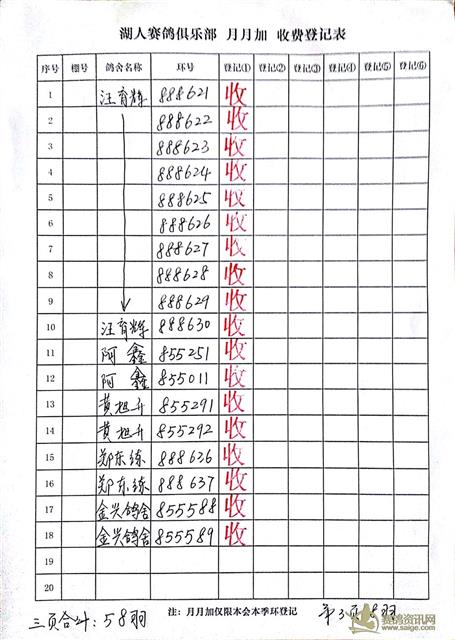 湖人赛鸽俱乐部 月月加 收费登记表
序号 棚号 鸽舍名称 环号 登记(1) 登记(2) 登记(3) 登记(4) 登记(5) 登记(6)
1 汪育辉 888621 收
2 888622 收
3 888623 收
4 888624 收
5 888625 收
6 888626 收
7 888627 收
8 888628 收
9 888629 收
10 汪育辉 888630 收
11 阿鑫 855251 收
12 阿鑫 855011 收
13 黄旭升 855291 收
14 黄旭升 855292 收
15 郑东练 888636 收
16 郑东练 888637 收
17 金兴鸽舍 855588 收
18 金兴鸽舍 855589 收
19
20
注：月月加仅限本会本季环登记
三页合计：58羽
第3页18羽
赛鸽资讯网
www.saige.com